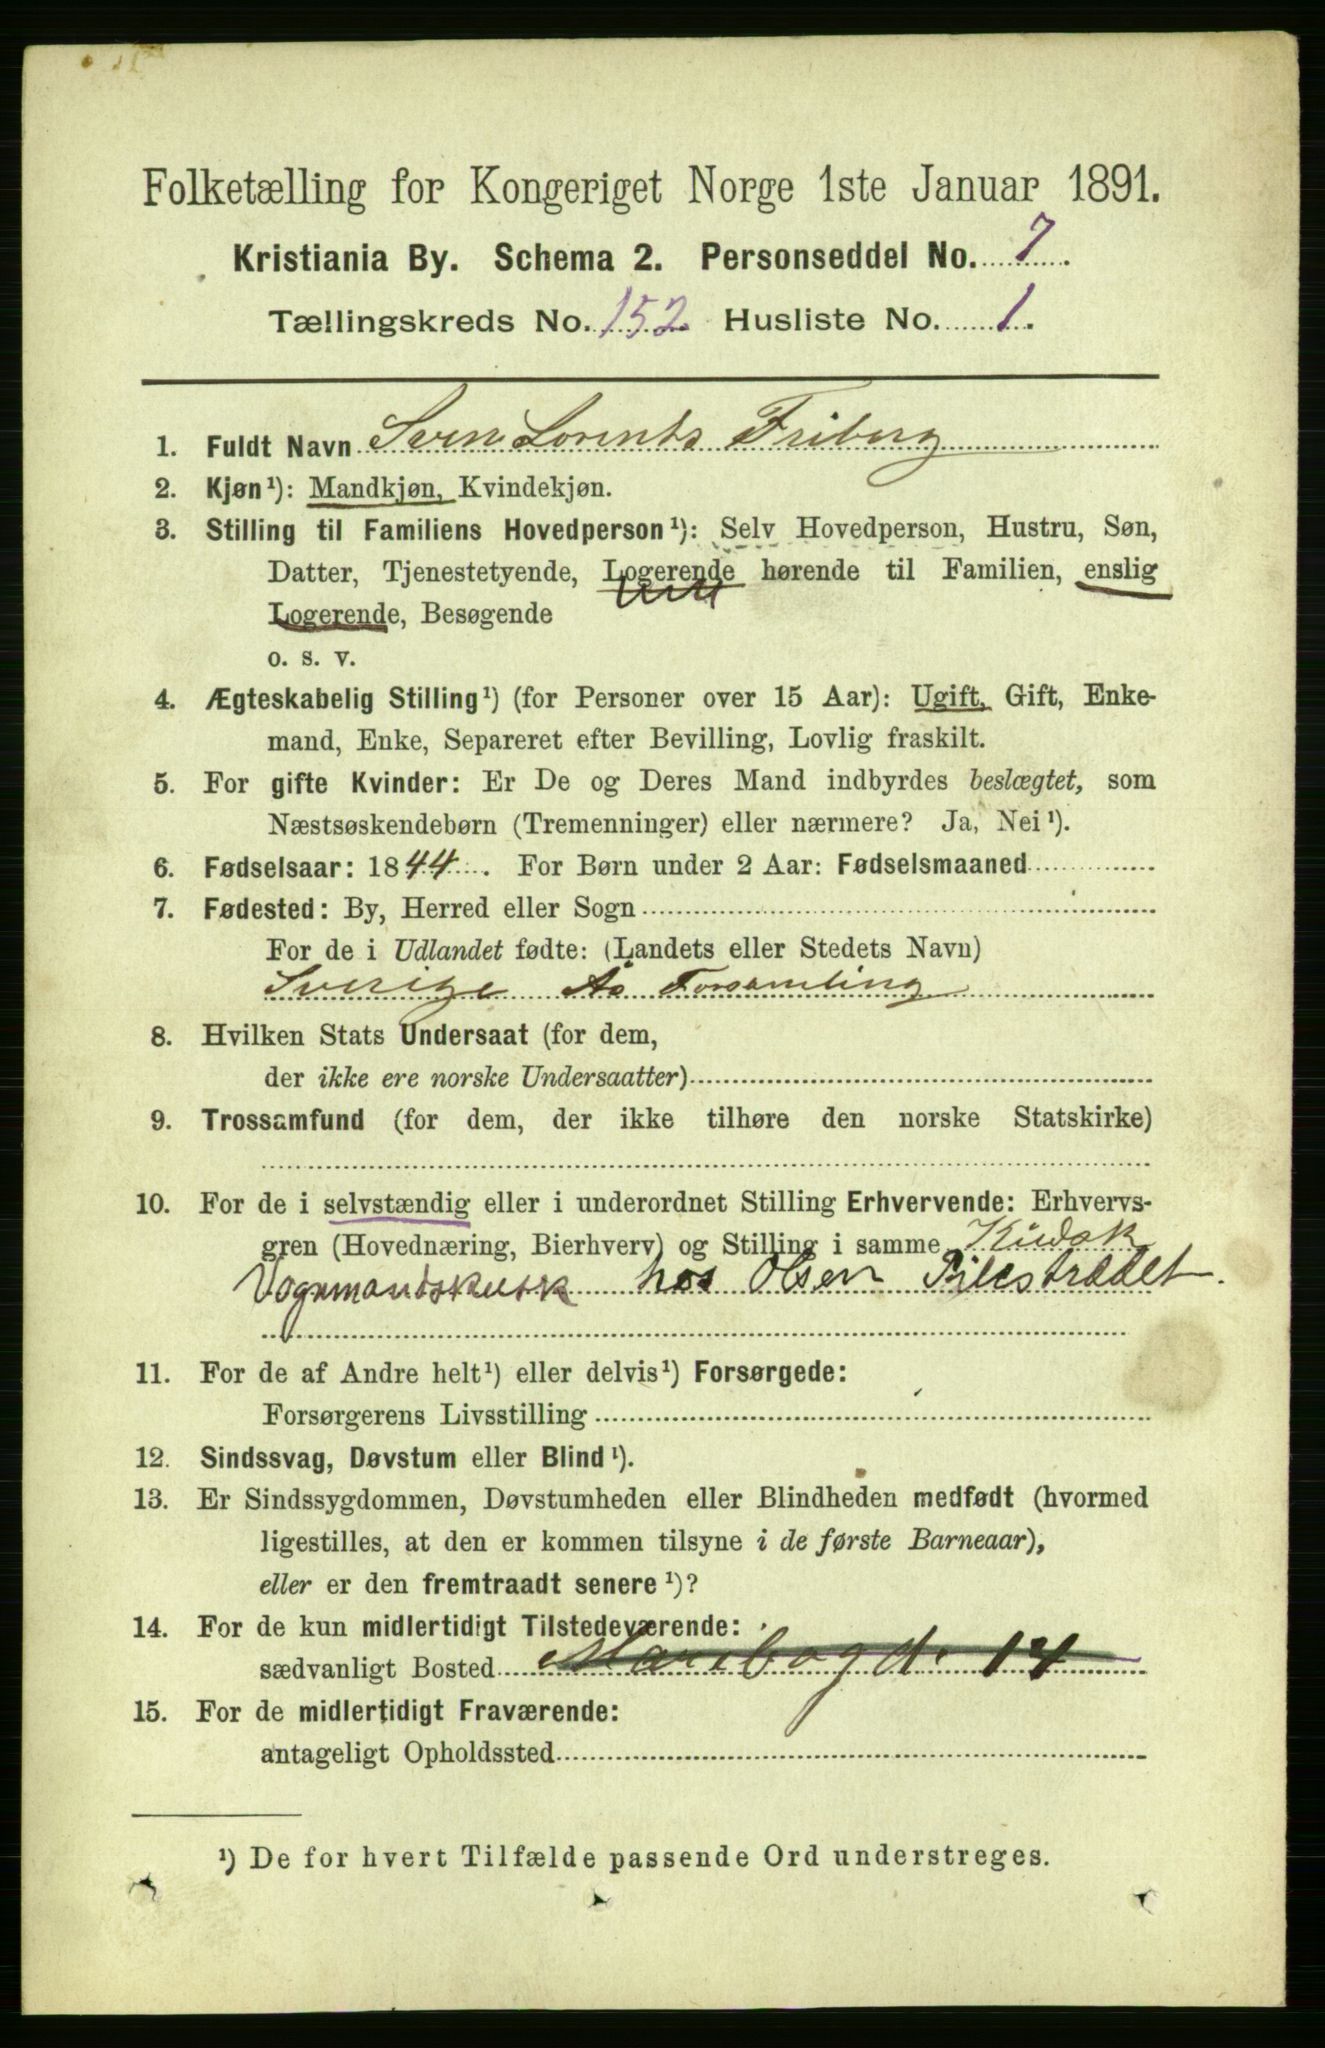 Folketælling for Kongeriget Norge 1ste Januar 1891.
Kristiania By. Schema 2. Personseddel No. 7.
Tællingskreds No. 152. Husliste No. 1.
1. Fuldt Navn Sven Lorents Friberg
2. Kjøn¹): Mandkjøn, Kvindekjøn.
3. Stilling til Familiens Hovedperson¹): Selv Hovedperson, Hustru, Søn,
Datter, Tjenestetyende, Logerende hørende til Familien, enslig
Logerende, Besøgende
o. s. v.
4. Ægteskabelig Stilling¹) (for Personer over 15 Aar): Ugift, Gift, Enke-
mand, Enke, Separeret efter Bevilling, Lovlig fraskilt.
5. For gifte Kvinder: Er De og Deres Mand indbyrdes beslægtet, som
Næstsøskendebørn (Tremenninger) eller nærmere? Ja, Nei¹).
6. Fødselsaar: 1844. For Børn under 2 Aar: Fødselsmaaned
7. Fødested: By, Herred eller Sogn
For de i Udlandet fødte: (Landets eller Stedets Navn)
Sverige Ås Forsamling
8. Hvilken Stats Undersaat (for dem,
der ikke ere norske Undersaatter)
9. Trossamfund (for dem, der ikke tilhøre den norske Statskirke)
10. For de i selvstændig eller i underordnet Stilling Erhvervende: Erhvervs-
gren (Hovednæring, Bierhverv) og Stilling i samme Kudsk
Vognmandskusk hos Olsen Pilestrædet.
11. For de af Andre helt¹) eller delvis¹) Forsørgede:
Forsørgerens Livsstilling
12. Sindssvag, Døvstum eller Blind¹).
13. Er Sindssygdommen, Døvstumheden eller Blindheden medfødt (hvormed
ligestilles, at den er kommen tilsyne i de første Barneaar),
eller er den fremtraadt senere¹)?
14. For de kun midlertidigt Tilstedeværende:
sædvanligt Bosted Maribogd. 14
15. For de midlertidigt Fraværende:
antageligt Opholdssted
¹) De for hvert Tilfælde passende Ord understreges.